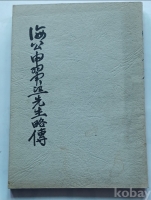 海公申翼熙先生略傳
kobay